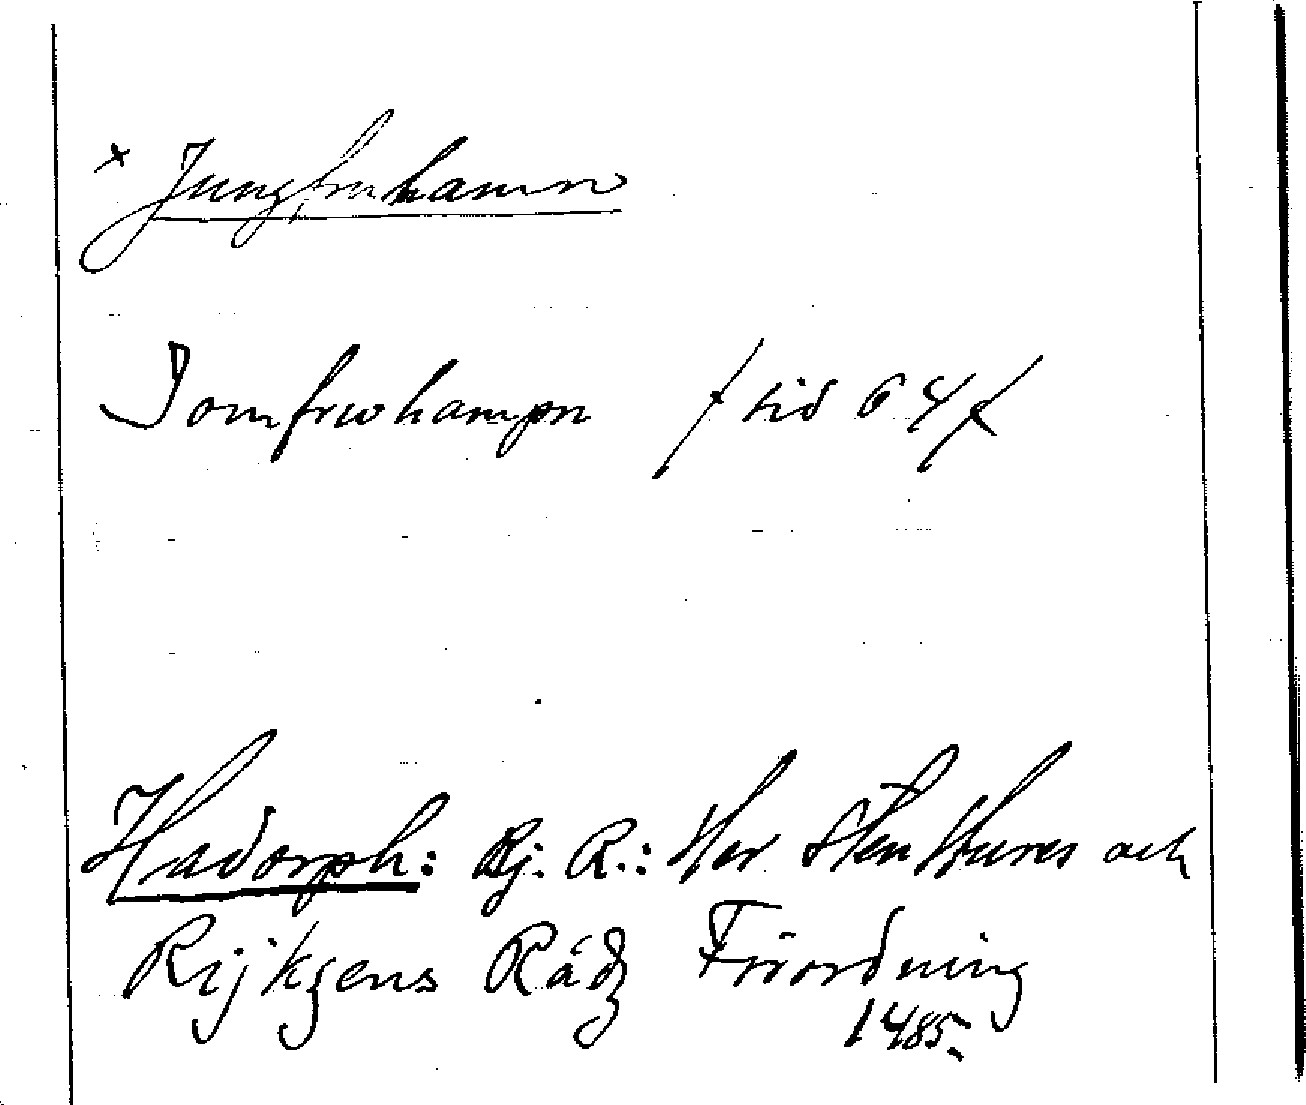 x Jungfruhamn
Jomfrwhampn / sid 64 /
Hadorph: Bj. R.: Her Sten Stures och
Rijkzens Rådz Förordning
1485.